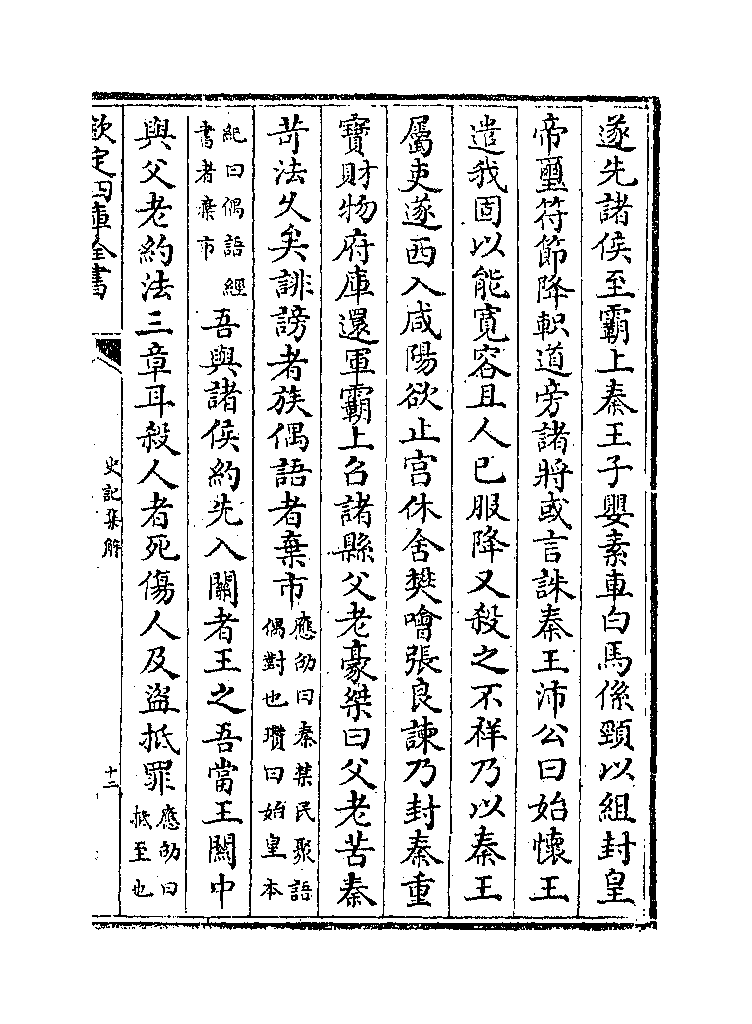 遂先諸侯至霸上秦王子嬰素車白馬係頸以組封皇
帝璽符節降軹道旁諸將或言誅秦王沛公曰始懷王
遣我固以能寛容且人已服降又殺之不祥乃以秦王
屬吏遂西入咸陽欲止宫休舍樊噲張良諫乃封秦重
寳財物府庫還軍霸上召諸縣父老豪桀曰父老苦秦
苛法久矣誹謗者族偶語者棄市應劭曰秦禁民聚語偶對也瓚曰始皇本
紀曰偶語經書者棄市吾與諸侯約先入關者王之吾當王關中
與父老約法三章耳殺人者死傷人及盗抵罪應劭曰抵至也
欽定四庫全書
史記集解
十二